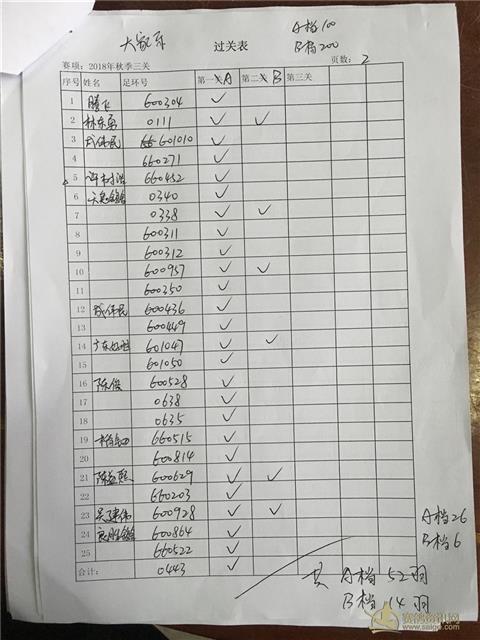 大家乐 过关表 A档100
B档200
赛项：2018年秋季三关 页数：2
序号 姓名 足环号 第一关A 第二关B 第三关
1 腾飞 600304 ✓
2 林东勇 0111 ✓ ✓
3 伟民 601010 ✓
4 660271 ✓
5 660452 ✓
6 0340 ✓
7 0338 ✓ ✓
8 600311 ✓
9 600312 ✓
10 600957 ✓ ✓
11 600350 ✓
12 伟民 600436 ✓
13 600449 ✓
14 广东 601047 ✓ ✓
15 601050 ✓
16 陈俊 600528 ✓
17 0638 ✓
18 0635 ✓
19 660515 ✓
20 600814 ✓
21 陈 600629 ✓ ✓
22 660203 ✓
23 吴建伟 600928 ✓ ✓
24 600864 ✓
25 660522 ✓
合计： 0443 ✓
A档26
B档6
共 A档 52羽
B档 14羽